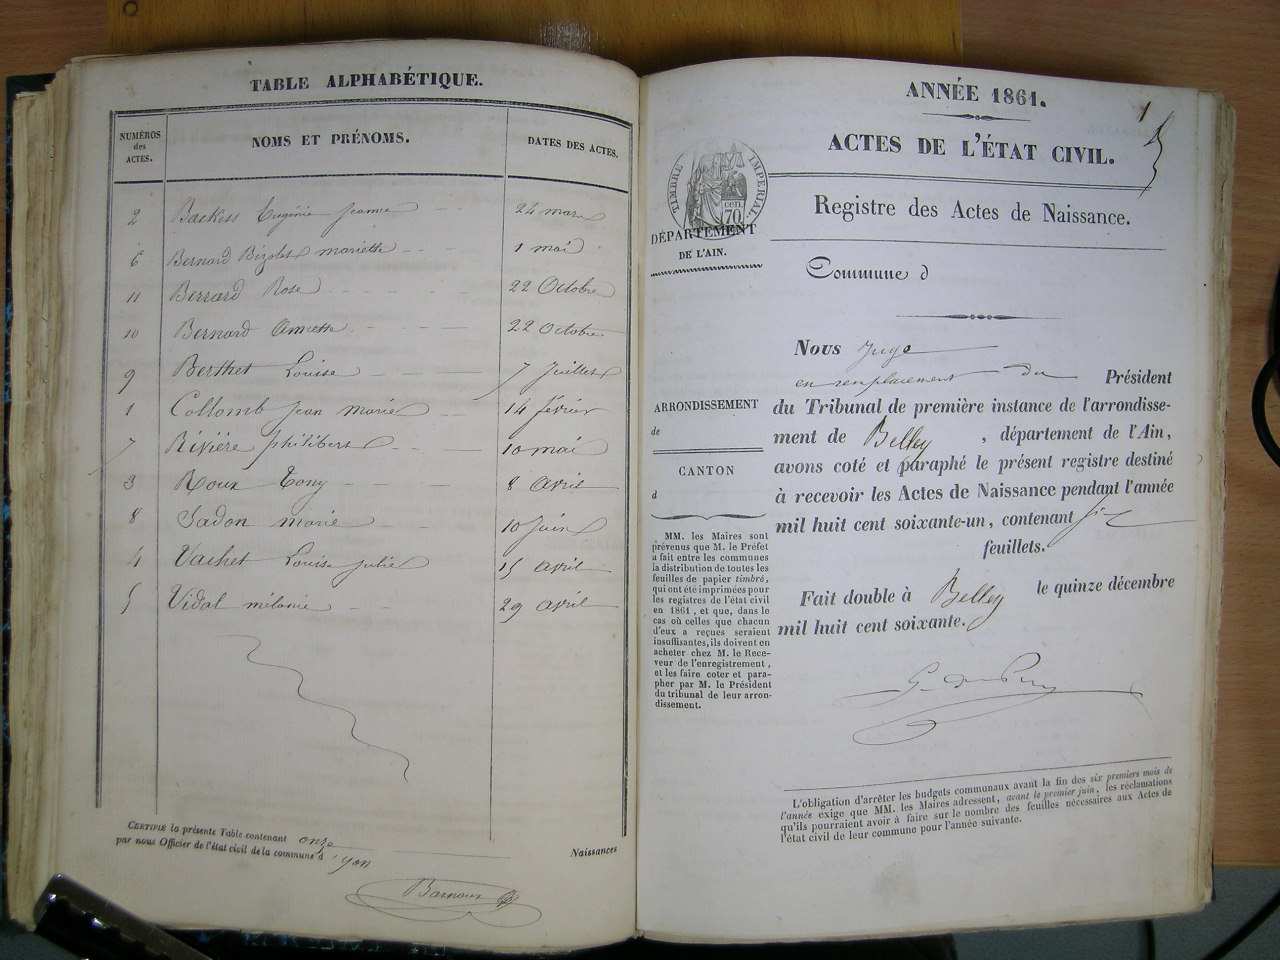 TABLE ALPHABÉTIQUE.
NUMÉROS des ACTES.
NOMS ET PRÉNOMS.
DATES DES ACTES.
2 Backess Eugénie Jeanne 24 mars
6 Bernard Bizolet mariette 1 mai
11 Berrard Rose 22 Octobre
10 Bernard 22 Octobre
9 Berthet Louise 7 Juillet
1 Collomb Jean Marie 14 février
7 Rivière philibert 10 mai
3 Roux Tony 8 avril
8 Sadon marie 10 Juin
4 Vachet Louise Julie 15 avril
5 Vidal mélanie 29 avril
CERTIFIÉ la présente Table contenant onze Naissances
par nous Officier de l'état civil de la commune d'yon
ANNÉE 1861.
1
ACTES DE L'ÉTAT CIVIL.
TIMBRE IMPERIAL
70 cen.
DÉPARTEMENT
DE L'AIN.
Registre des Actes de Naissance.
Commune d
Nous Juge
en remplacement du Président
du Tribunal de première instance de l'arrondisse-
ment de Belley, département de l'Ain,
avons coté et paraphé le présent registre destiné
à recevoir les Actes de Naissance pendant l'année
mil huit cent soixante-un, contenant six
feuillets.
Fait double à Belley le quinze décembre
mil huit cent soixante.
ARRONDISSEMENT
de
CANTON
d
MM. les Maires sont
prévenus que M. le Préfet
a fait entre les communes
la distribution de toutes les
feuilles de papier timbré,
qui ont été imprimées pour
les registres de l'état civil
en 1861, et que, dans le
cas où celles que chacun
d'eux a reçues seraient
insuffisantes, ils doivent en
acheter chez M. le Rece-
veur de l'enregistrement,
et les faire coter et para-
pher par M. le Président
du tribunal de leur arron-
dissement.
L'obligation d'arrêter les budgets communaux avant la fin des six premiers mois de
l'année exige que MM. les Maires adressent, avant le premier juin, les réclamations
qu'ils pourraient avoir à faire sur le nombre des feuilles nécessaires aux Actes de
l'état civil de leur commune pour l'année suivante.